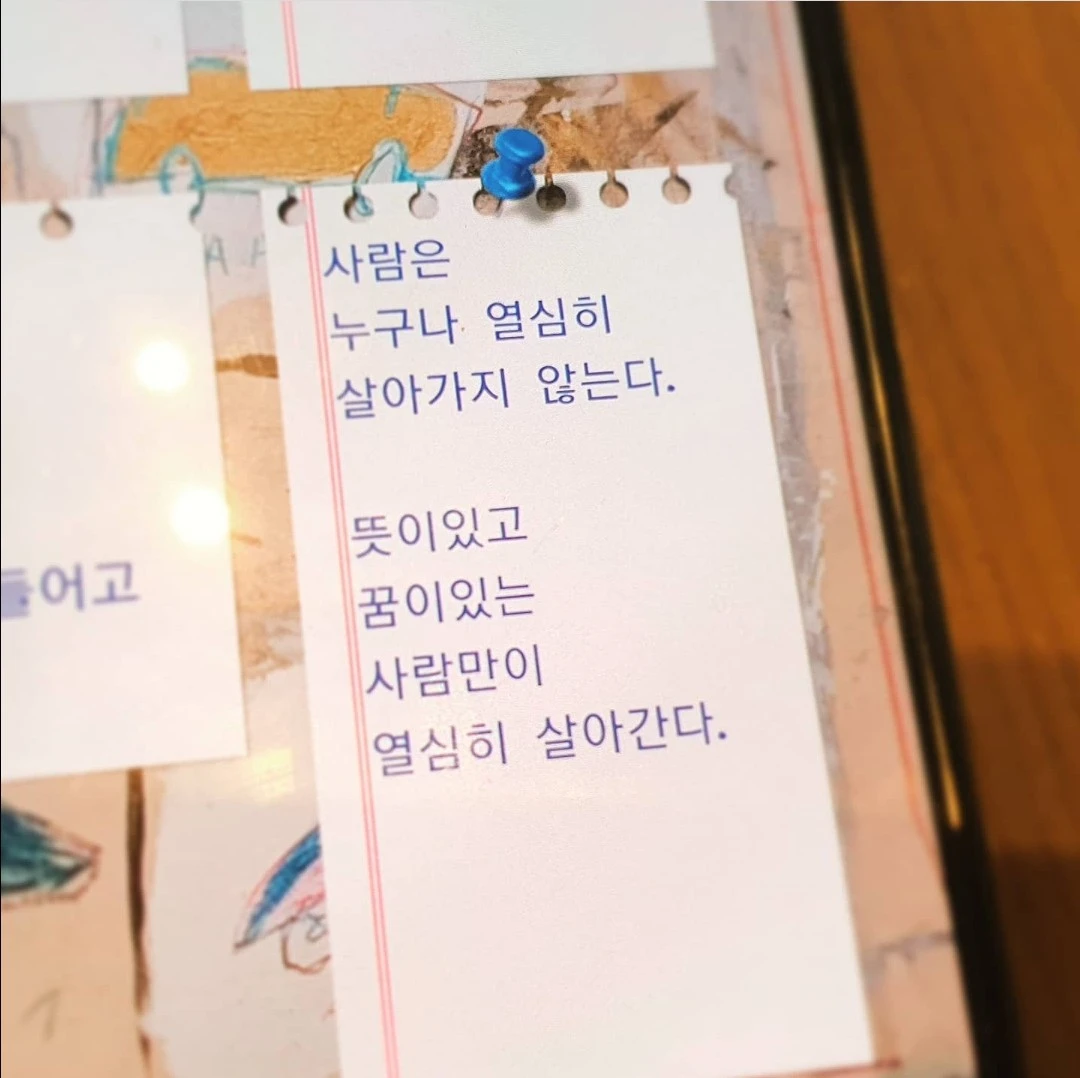 사람은
누구나 열심히
살아가지 않는다.
뜻이있고
꿈이있는
사람만이
열심히 살아간다.
어고